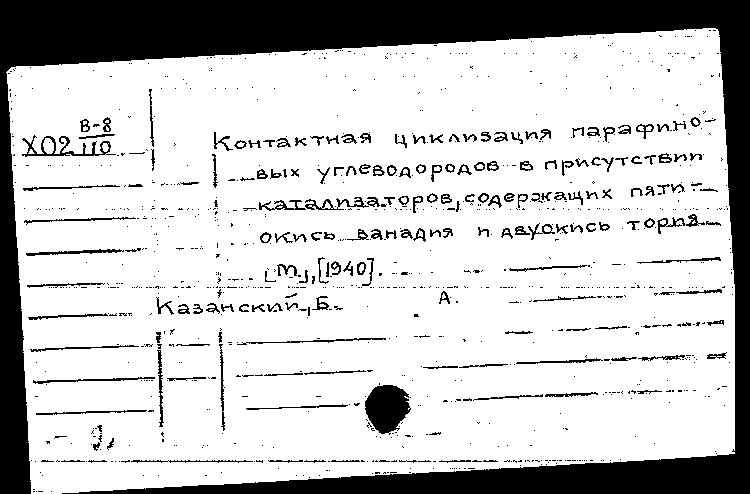 В-8
Х02 110
Контактная циклизация парафино-
вых углеводородов в присутствии
катализаторов, содержащих пяти-
окись ванадия и двуокись тория
[М.], [1940].
Казанский, Б. А.